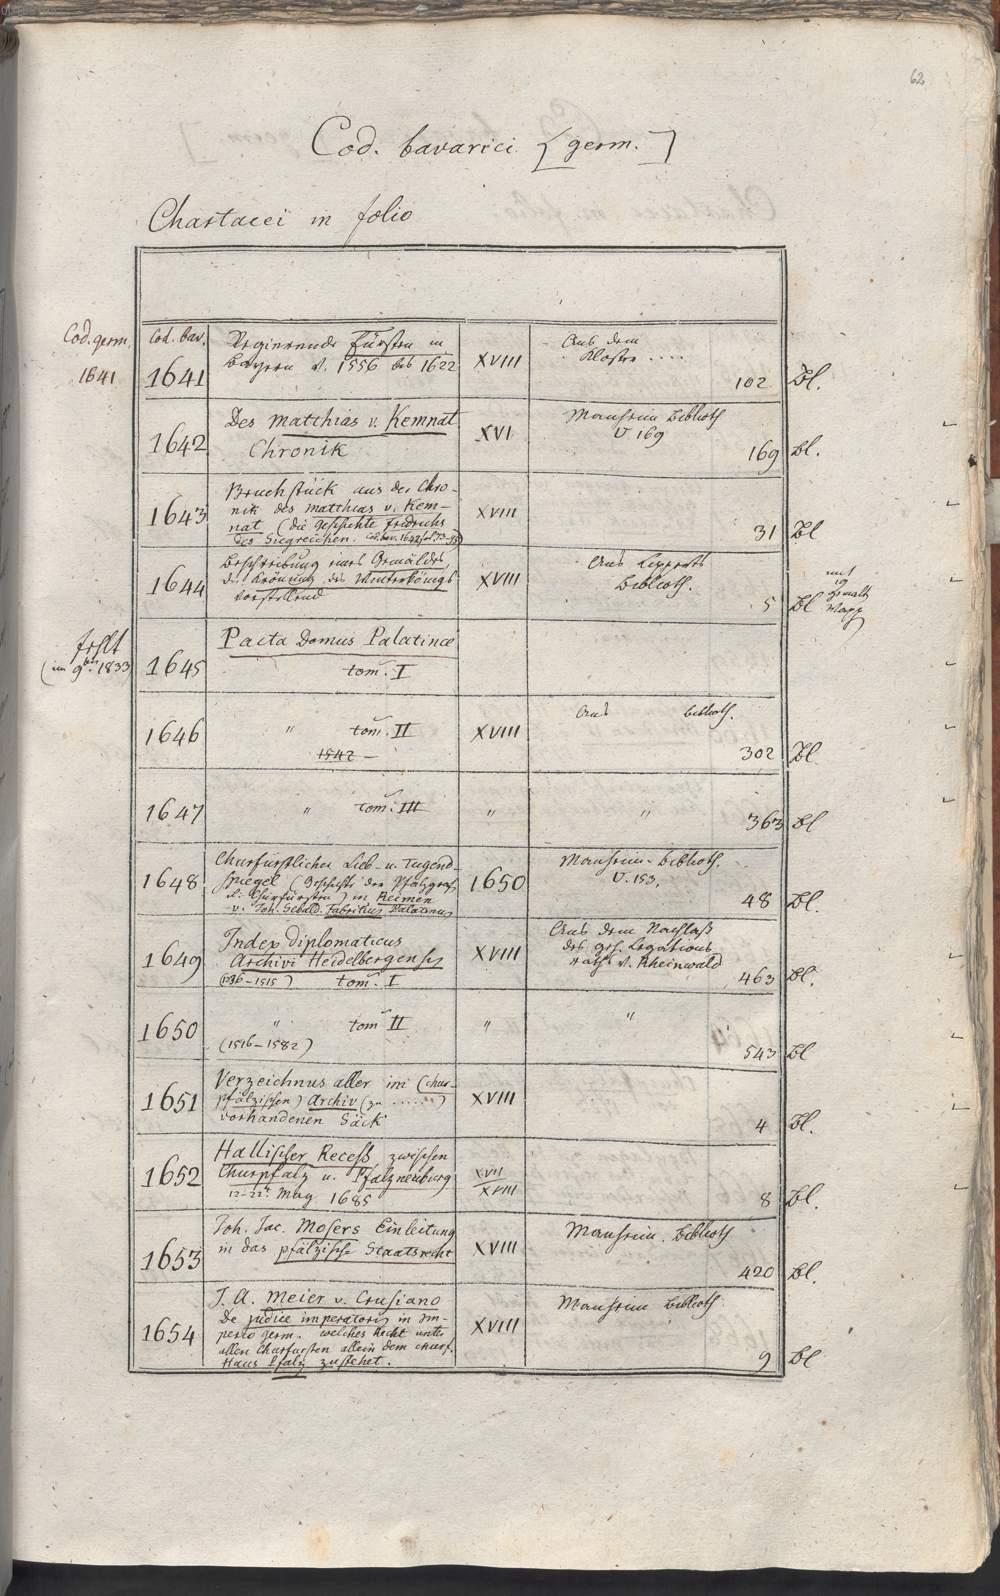 62
Cod. bavarici [germ.]
Chartacei in folio
Cod. germ.
1641
Cod. bav.
1641
Regierende Fürsten in
Bayern v. 1556 bis 1622
XVIII
Aus dem
Kloster ....
102 Bl.
1642
Des Matthias v. Kemnat
Chronik
XVI
Manheim Biblioth
V 169
169 Bl.
1643
Bruchstück aus der Chro-
nik des Matthias v. Kem-
nat (die Geschichte Fridrichs
des Siegreichen. Cod. bav. 1642
XVIII
31 Bl
1644
Beschreibung eines Gemäldes,
die Krönung des Winterkönigs
vorstellend
XVIII
Aus
Biblioth.
5 Bl
mit
19
gemalt
Wapp
fehlt
(im 9br. 1833)
1645
Pacta Domus Palatinæ
tom. I
1646
" tom. II
1542 –
XVIII
Aus Biblioth.
302 Bl
1647
" tom. III
"
"
363 Bl
1648
Churfürstlicher Lieb- u. Tugend-
spiegel (Geschichte der Pfalzgraf.
u. Churfürsten) in Reimen
v. Joh. Sebald. Fabricius Palatinus
1650
Manheim. Biblioth.
V. 153.
48 Bl.
1649
Index diplomaticus
Archivi Heidelbergensis
– 1515) tom. I
XVIII
Aus dem Nachlaß
des geh. Legations
raths v. Rheinwald
463 Bl.
1650
" tom II
(1516–1582)
"
"
543 Bl
1651
Verzeichnus aller im (chur-
pfälzischen) Archiv (zu ......)
vorhandenen Säck
XVIII
4 Bl.
1652
Hallischer Recess zwischen
Churpfalz u. Pfalzneuburg
12–22t. May 1685
XVII
XVIII
8 Bl.
1653
Joh. Jac. Mosers Einleitung
in das pfälzische Staatsrecht
XVIII
Manheim. Biblioth
420 Bl.
1654
J. A. Meier v. Crusiano
De judice imperatoris in Im-
perio germ. welches Recht unter
allen Churfürsten allein dem churf.
Haus Pfalz zustehet.
XVIII
Manheim Biblioth.
9 Bl